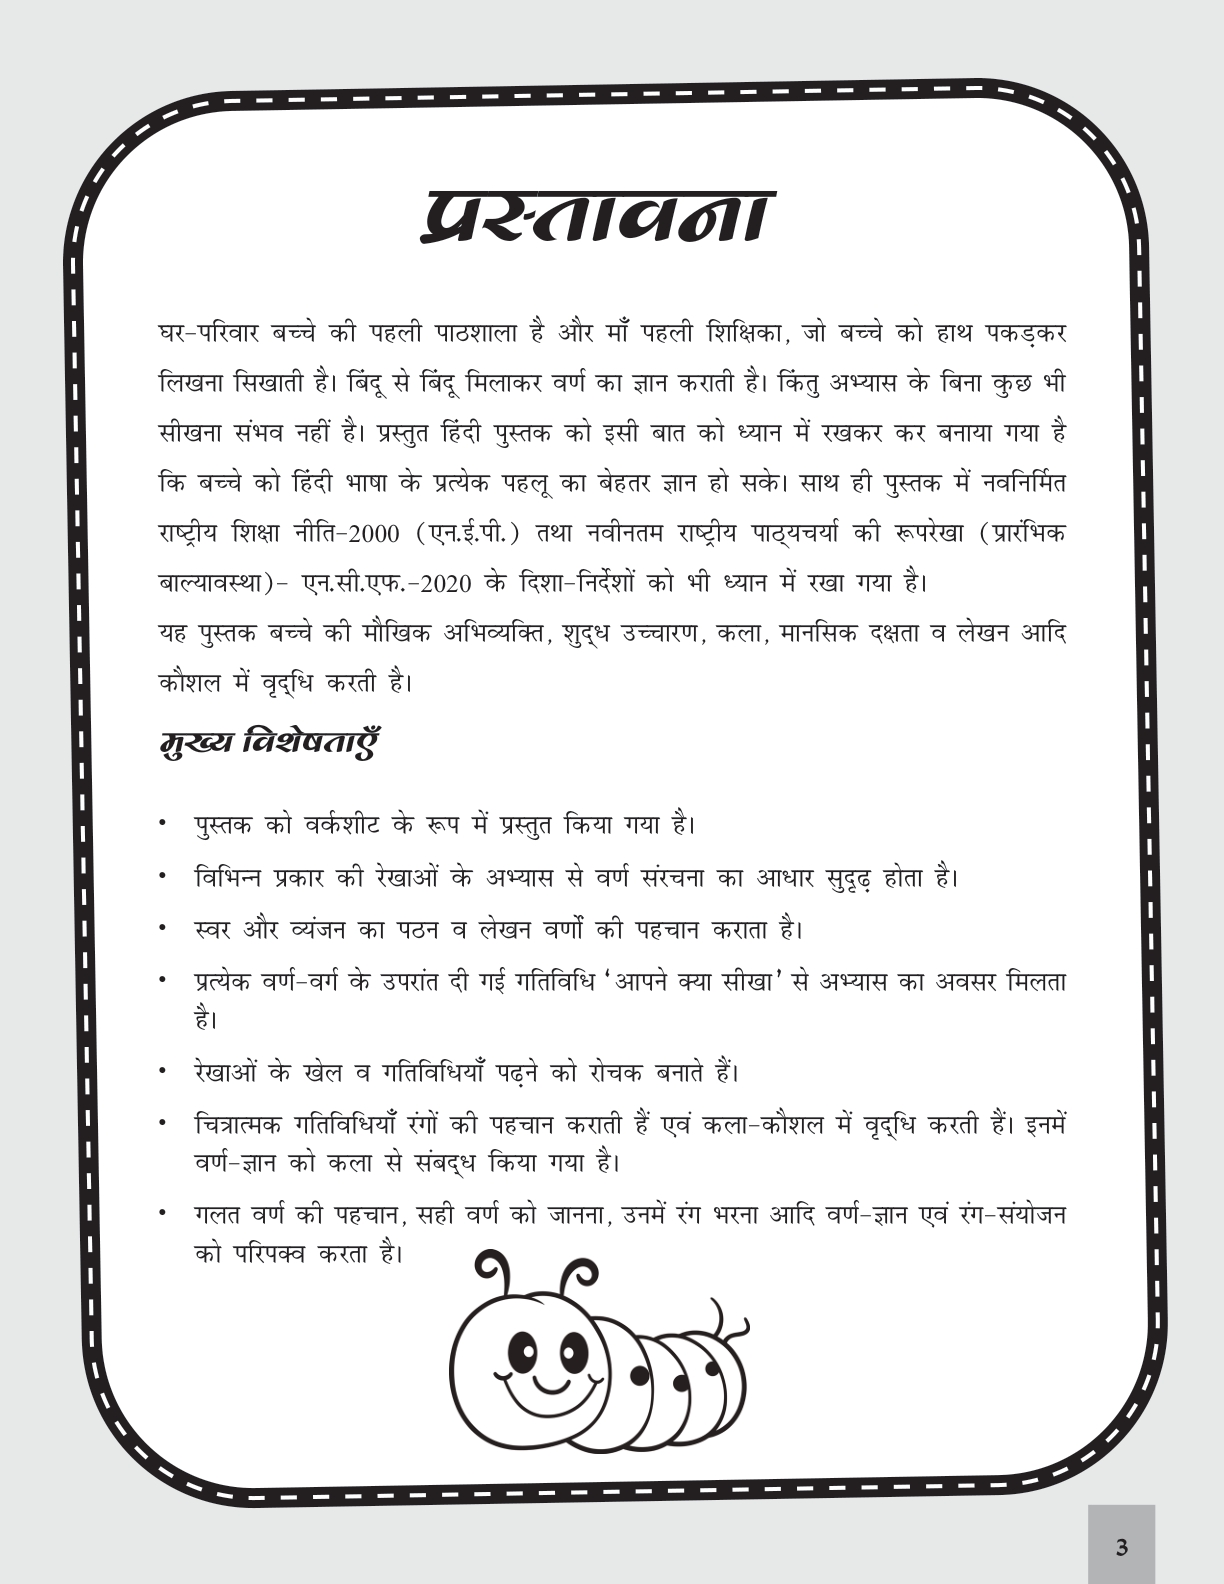 प्रस्तावना
घर-परिवार बच्चे की पहली पाठशाला है और माँ पहली शिक्षिका, जो बच्चे को हाथ पकड़कर
लिखना सिखाती है। बिंदू से बिंदू मिलाकर वर्ण का ज्ञान कराती है। किंतु अभ्यास के बिना कुछ भी
सीखना संभव नहीं है। प्रस्तुत हिंदी पुस्तक को इसी बात को ध्यान में रखकर कर बनाया गया है
कि बच्चे को हिंदी भाषा के प्रत्येक पहलू का बेहतर ज्ञान हो सके। साथ ही पुस्तक में नवनिर्मित
राष्ट्रीय शिक्षा नीति-2000 (एन.ई.पी.) तथा नवीनतम राष्ट्रीय पाठ्यचर्या की रूपरेखा (प्रारंभिक
बाल्यावस्था)- एन.सी.एफ.-2020 के दिशा-निर्देशों को भी ध्यान में रखा गया है।
यह पुस्तक बच्चे की मौखिक अभिव्यक्ति, शुद्ध उच्चारण, कला, मानसिक दक्षता व लेखन आदि
कौशल में वृद्धि करती है।
मुख्य विशेषताएँ
• पुस्तक को वर्कशीट के रूप में प्रस्तुत किया गया है।
• विभिन्न प्रकार की रेखाओं के अभ्यास से वर्ण संरचना का आधार सुदृढ़ होता है।
• स्वर और व्यंजन का पठन व लेखन वर्णों की पहचान कराता है।
• प्रत्येक वर्ण-वर्ग के उपरांत दी गई गतिविधि ‘आपने क्या सीखा’ से अभ्यास का अवसर मिलता
है।
• रेखाओं के खेल व गतिविधियाँ पढ़ने को रोचक बनाते हैं।
• चित्रात्मक गतिविधियाँ रंगों की पहचान कराती हैं एवं कला-कौशल में वृद्धि करती हैं। इनमें
वर्ण-ज्ञान को कला से संबद्ध किया गया है।
• गलत वर्ण की पहचान, सही वर्ण को जानना, उनमें रंग भरना आदि वर्ण-ज्ञान एवं रंग-संयोजन
को परिपक्व करता है।
3